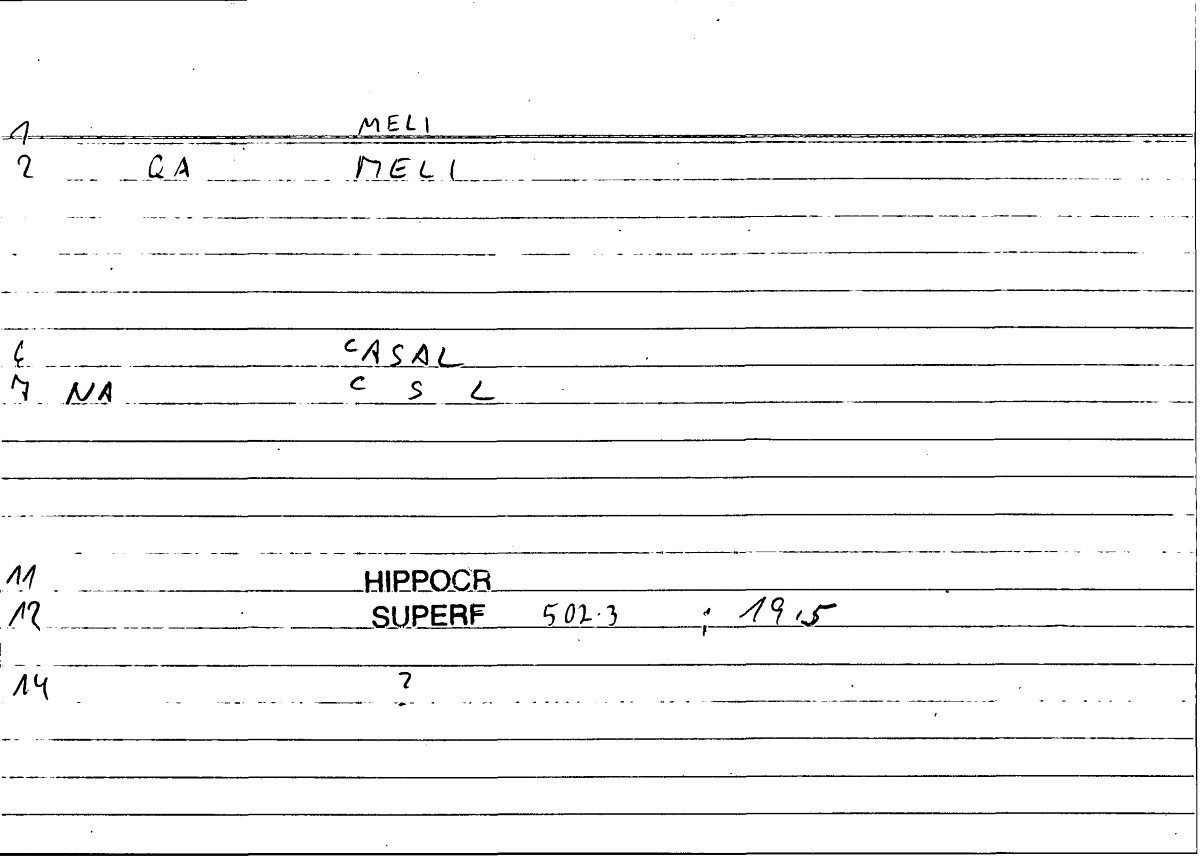 1 MELI
2 QA MELI
6 CASAL
7 NA C S L
11 HIPPOCR
12 SUPERF 502.3 ; 19.5
14 ?